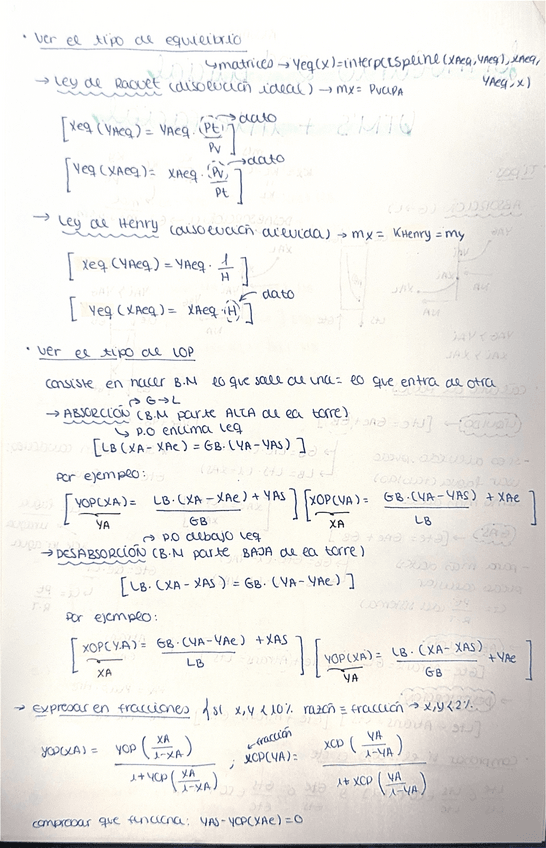 · Ver el tipo de equilibrio
↳ matrices → Yeq(x)=interp(cspline(XAeq, YAeq), XAeq, YAeq, x)
→ Ley de Raoult (disolución ideal) → mx = Pv(A)/PA
[Xeq (YAeq) = YAeq · Pt/Pv] → dato
[Yeq (XAeq) = XAeq · Pv/Pt] → dato
→ Ley de Henry (disolución diluida) → mx = KHenry = my
[Xeq (YAeq) = YAeq · 1/H]
[Yeq (XAeq) = XAeq · H] dato
· Ver el tipo de LOP
consiste en hacer B.M lo que sale de una = lo que entra de otra
→ G→L
→ ABSORCIÓN (B.M parte ALTA de la torre)
↳ P.O encima Leq
[LB (XA - XAe) = GB · (YA - YAS)]
Por ejemplo:
[YOP(XA) = (LB · (XA - XAe) + YAS) / GB] [XOP(YA) = GB · (YA - YAS) / LB + XAe]
YA XA
→ P.O debajo Leq
→ DESABSORCIÓN (B.M parte BAJA de la torre)
[LB · (XA - XAS) = GB · (YA - YAe)]
Por ejemplo:
[XOP(YA) = GB · (YA - YAe) / LB + XAS] [YOP(XA) = LB · (XA - XAS) / GB + YAe]
XA YA
→ Expresar en fracciones { si x, y < 10% razón ≡ fracción → x, y < 2%
fracción
yop(xA) = YOP (xA / 1-xA) / 1 + YOP (xA / 1-xA) ; xop(yA) = XOP (yA / 1-yA) / 1 + XOP (yA / 1-yA)
comprobar que funciona: YAS - YOP(XAe) = 0